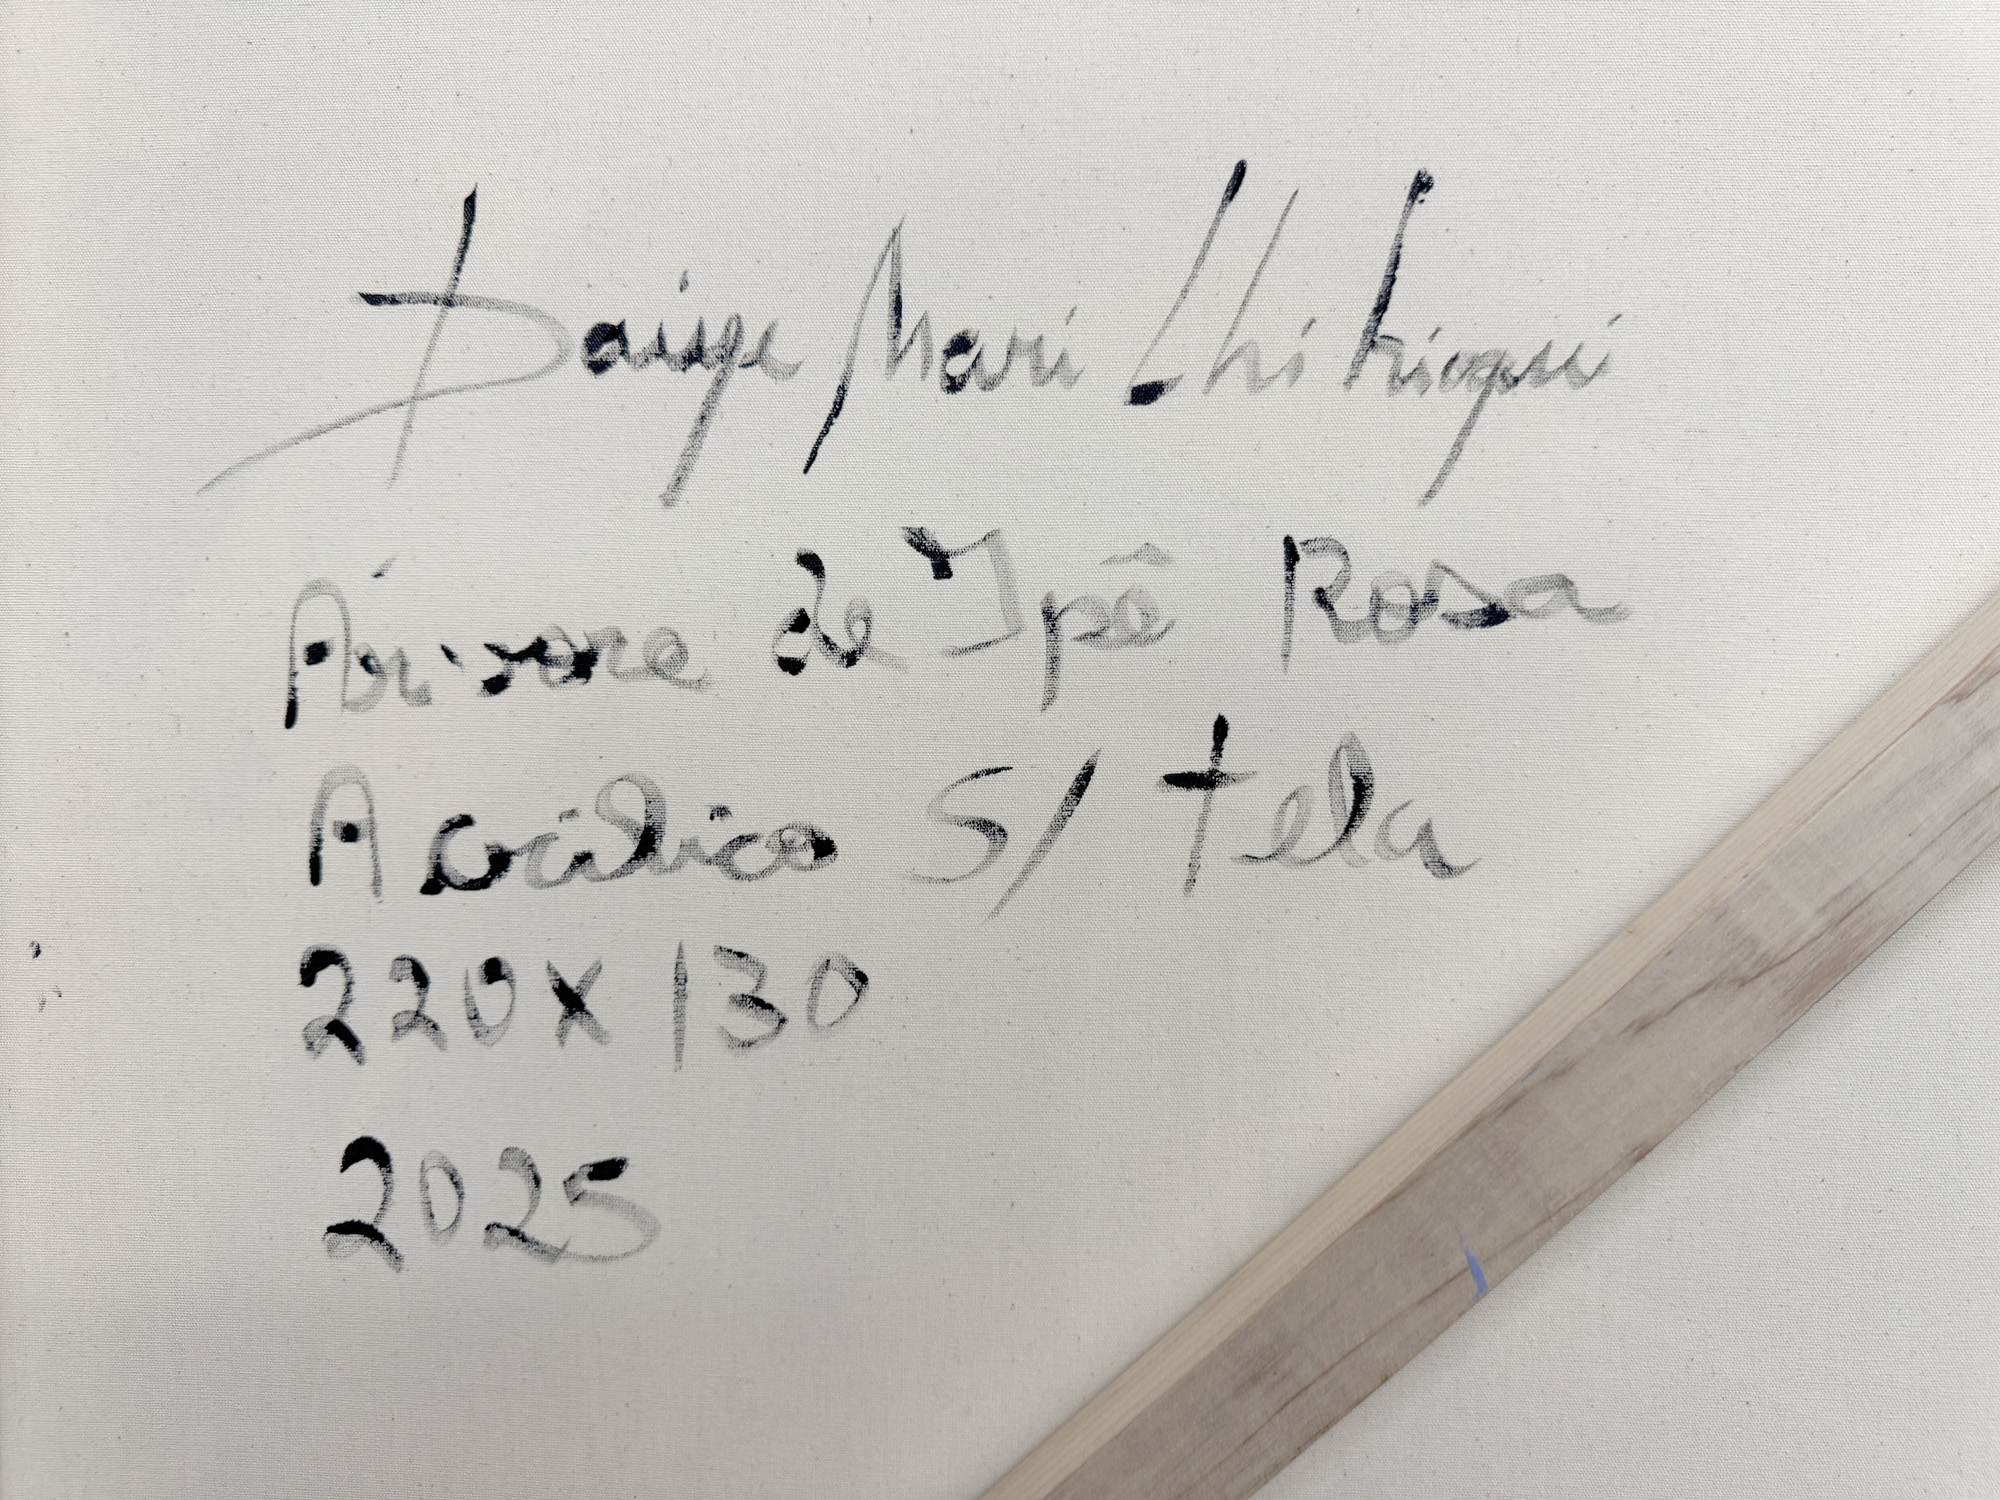 Daisye Mari Chihiroqui
Árvore de Ipê Rosa
Acrílico S/ tela
220x130
2025